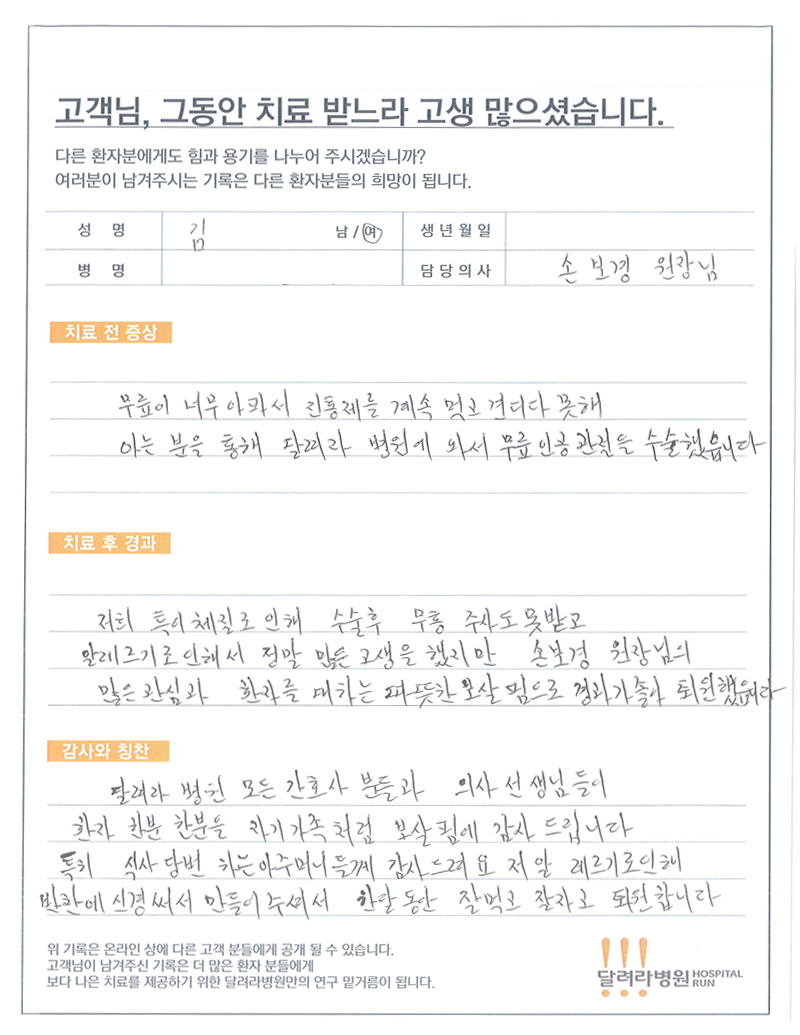 고객님, 그동안 치료 받느라 고생 많으셨습니다.
다른 환자분에게도 힘과 용기를 나누어 주시겠습니까?
여러분이 남겨주시는 기록은 다른 환자분들의 희망이 됩니다.
성 명 김 남 / 여 생년월일
병 명 담당의사 손보경 원장님
치료 전 증상
무릎이 너무아파서 진통제를 계속 먹고 견디다 못해
아는 분을 통해 달려라 병원에 와서 무릎인공관절을 수술했읍니다
치료 후 경과
저희 특이체질로 인해 수술후 무통 주사도 못받고
알레르기로인해서 정말 많은 고생을 했지만 손보경 원장님의
많은관심과 환자를 대하는 따뜻한 보살핌으로 경과가좋아 퇴원했읍니다
감사와 칭찬
달려라 병원 모든 간호사 분들과 의사선생님들이
환자 한분 한분을 자기가족처럼 보살핌에 감사드립니다
특히 식사당번 하는아주머니들께 감사드려요 저 알레르기로인해
반찬에 신경써서 만들어주셔서 한달동안 잘먹고 잘자고 퇴원합니다
위 기록은 온라인 상에 다른 고객 분들에게 공개 될 수 있습니다.
고객님이 남겨주신 기록은 더 많은 환자 분들에게
보다 나은 치료를 제공하기 위한 달려라병원만의 연구 밑거름이 됩니다.
달려라병원 HOSPITAL RUN